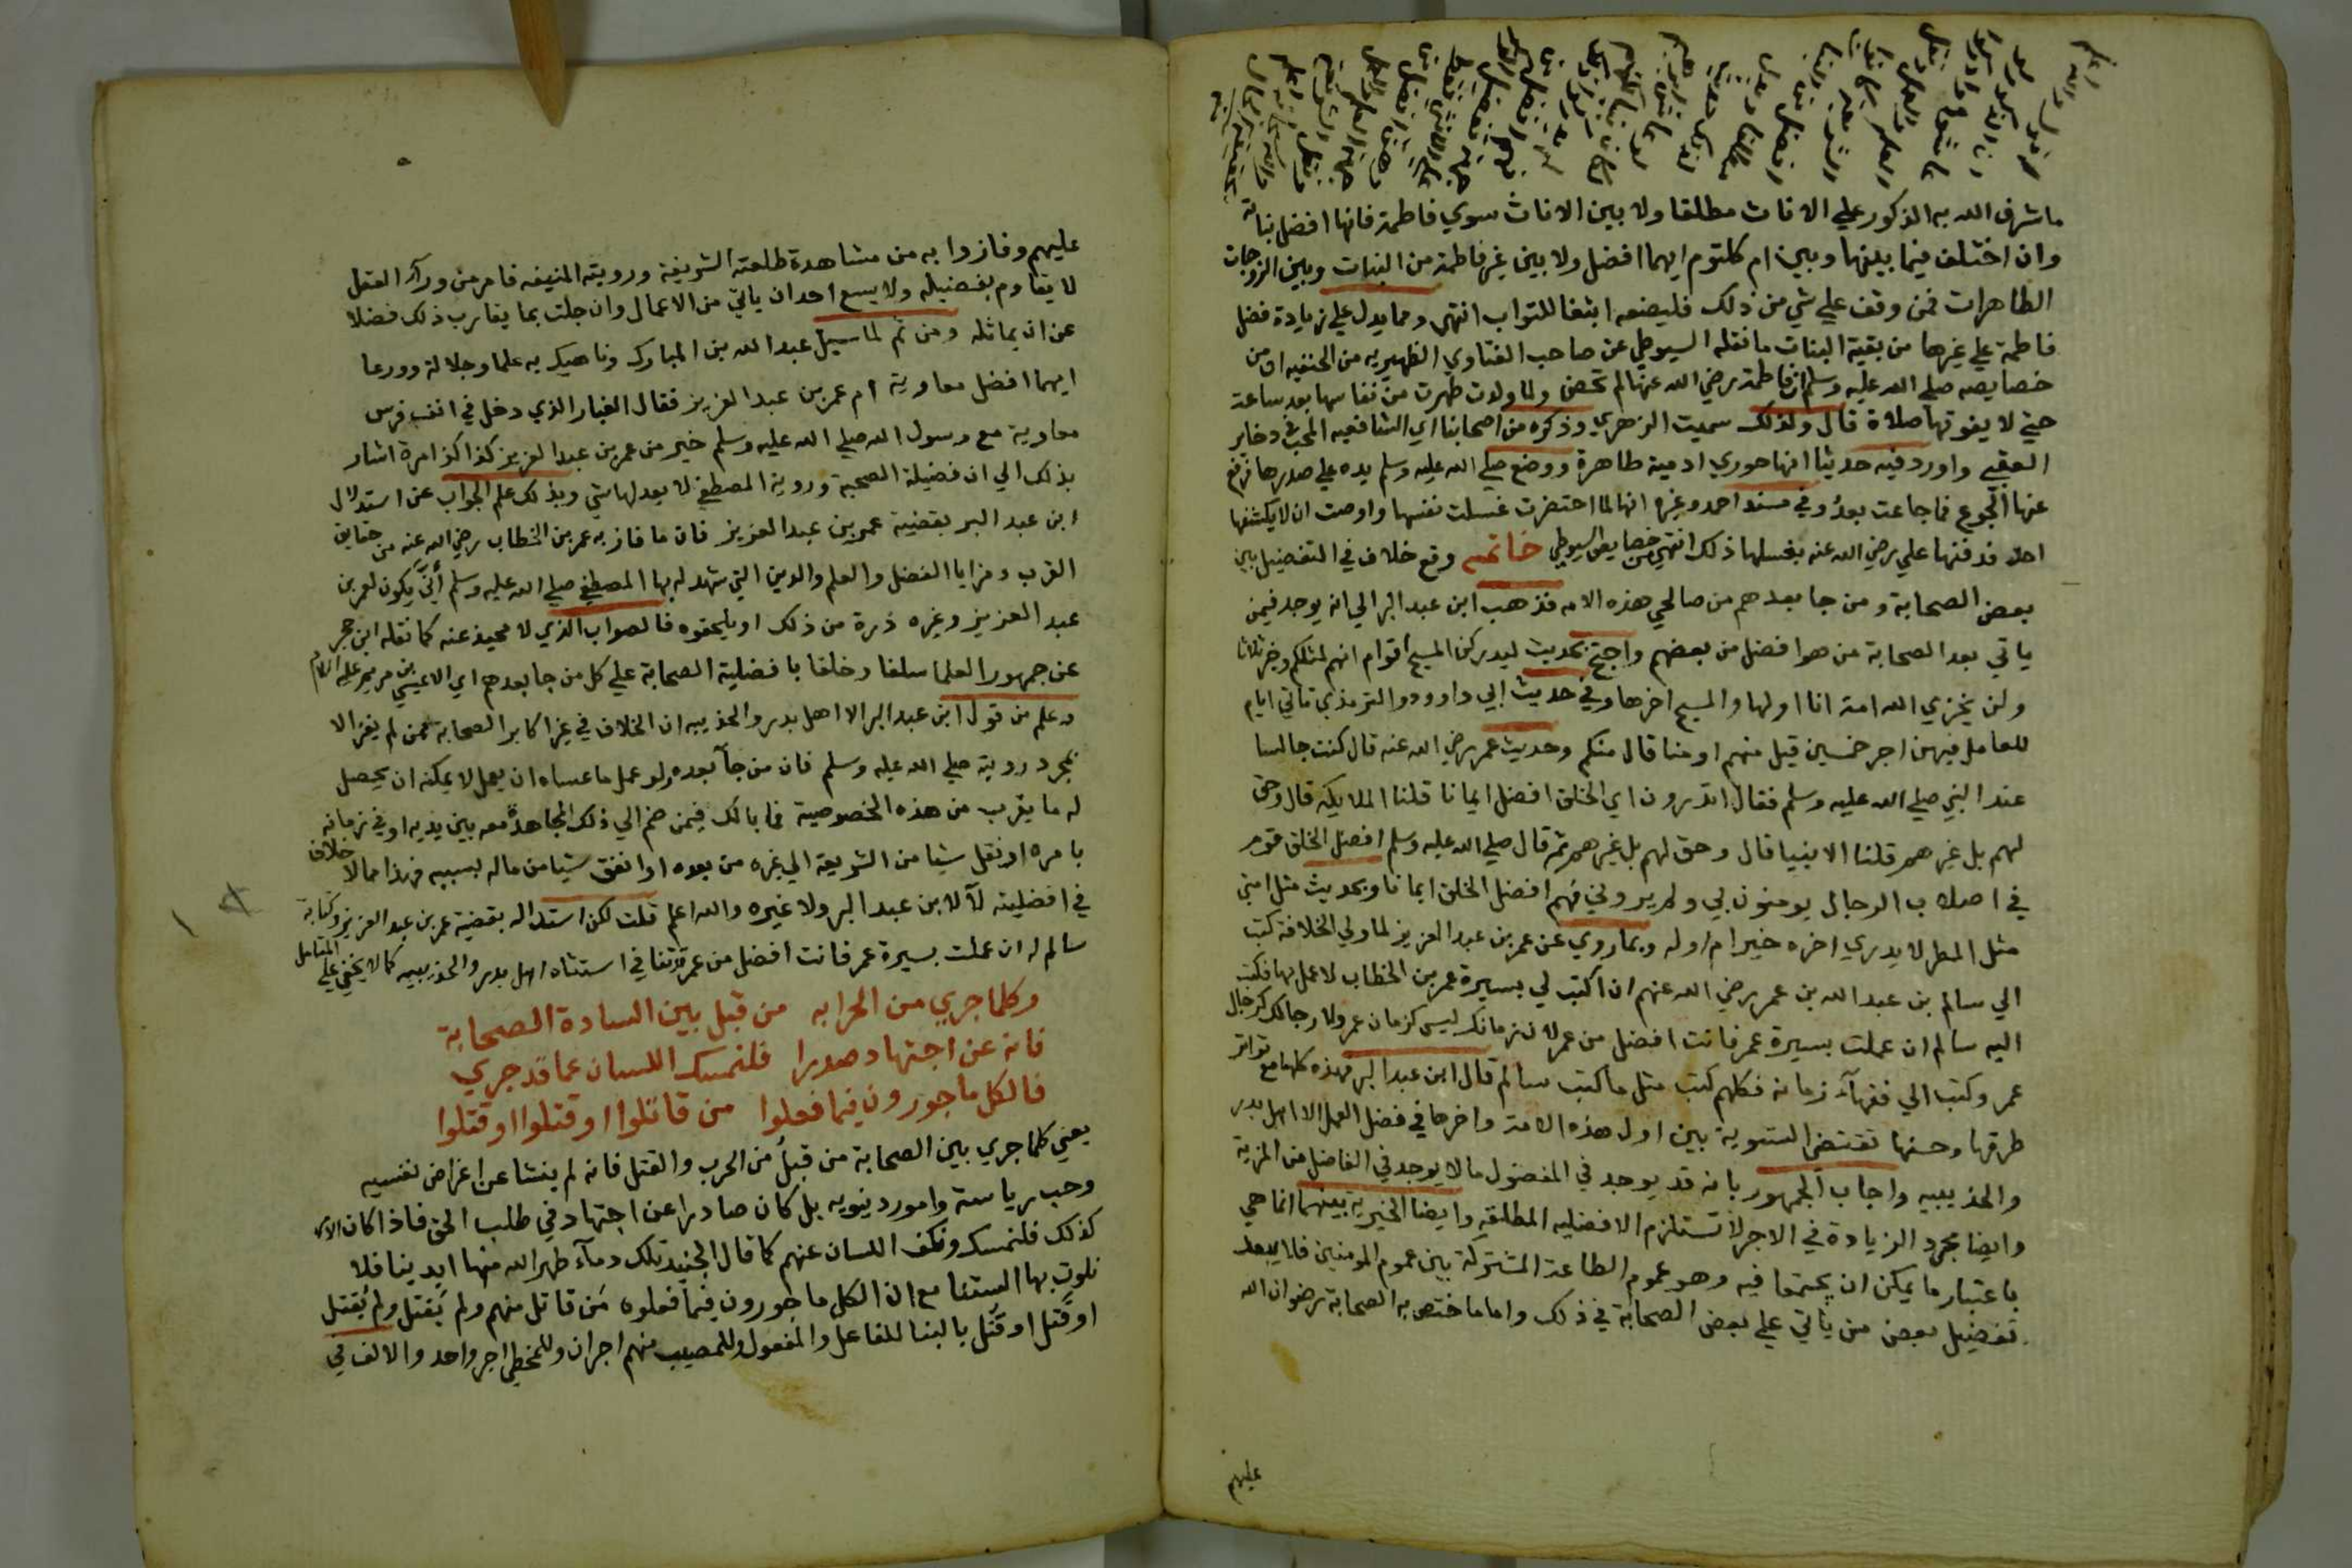 ما شرف الله به الذكور علي الاناث مطلقا ولا بين الاناث سوي فاطمة فانها افضل بناته
وان اختلف فيما بينها وبين ام كلثوم ايهما افضل ولا بين غير فاطمة من البنات وبين الزوجات
الطاهرات فمن وقف علي شي من ذلك فليضعه ابتغا للثواب انتهي ومما يدل علي زيادة فضل
فاطمة علي غيرها من بقية البنات ما نقله السيوطي عن صاحب الفتاوي الظهيريه من الحنفيه ان من
خصايصه صلي الله عليه وسلم ان فاطمة رضي الله عنها لم تحض ولما ولدت طهرت من نفاسها بعد ساعة
حتي لا يفوتها صلاة قال ولذلك سميت الزهري وذكره من اصحابنا اي الشافعيه المحب في دخاير
العقبي واورد فيه حديثا انها حوري ادمية طاهرة ووضع صلي الله عليه وسلم يده علي صدرها فرفع
عنها الجوع فما جاعت بعد وفي مسند احمد وغيره انها لما احتضرت غسلت نفسها واوصت ان لا يكشفها
احد فدفنها علي رضي الله عنه بغسلها ذلك انتهي من خصايص السيوطي خاتمه وقع خلاف في التفضيل بين
بعض الصحابة ومن جا بعدهم من صالحي هذه الامه فذهب ابن عبد البر الي انه يوجد فيمن
ياتي بعد الصحابة من هو افضل من بعضهم واحتج بحديث ليدركن المسيح اقوام انهم لمثلكم او خير ثلاثا
ولن يخزي الله امة انا اولها والمسيح اخرها وفي حديث ابي داوود والترمذي تاتي ايام
للعامل فيهن اجر خمسين قيل منهم او منا قال منكم وحديث عمر رضي الله عنه قال كنت جالسا
عند النبي صلي الله عليه وسلم فقال اتدرون اي الخلق افضل ايمانا قلنا الملايكه قال وحق
لهم بل غيرهم قلنا الانبيا قال وحق لهم بل غيرهم ثم قال صلي الله عليه وسلم افضل الخلق قوم
في اصلاب الرجال يومنون بي ولم يروني فهم افضل الخلق ايمانا وبحديث مثل امتي
مثل المطر لا يدري اخره خير ام اوله وبما روي عن عمر بن عبد العزيز لما ولي الخلافة كتب
الي سالم بن عبد الله بن عمر رضي الله عنهم ان اكتب لي بسيرة عمر بن الخطاب لاعمل بها فكتب
اليه سالم ان عملت بسيرة عمر فانت افضل من عمر لان زمانك ليس كزمان عمر ولا رجالك كرجال
عمر وكتب الي فقهآء زمانه فكلهم كتب مثل ما كتب سالم قال ابن عبد البر فهذه كلها مع تواتر
طرقها وحسنها تقتضي التسوية بين اول هذه الامة واخرها في فضل العمل الا اهل بدر
والحديبيه واجاب الجمهور بانه قد يوجد في المفضول ما لا يوجد في الفاضل من المزية
وايضا مجرد الزيادة في الاجر لا تستلزم الافضليه المطلقه وايضا الخيرية بينهما انما هي
باعتبار ما يمكن ان يجتمعا فيه وهو عموم الطاعة المشتركة بين عموم المومنين فلا يبعد
تفضيل بعض من ياتي علي بعض الصحابة في ذلك واما ما اختص به الصحابة رضوان الله
عليهم
عليهم وفازوا به من مشاهدة طلعته الشريفة ورويته المنيفه فامر من ورآء العقل
لا يقاوم بفضيله ولا يسع احد ان ياتي من الاعمال وان جلت بما يقارب ذلك فضلا
عن ان يماثله ومن ثم لما سيل عبد الله بن المبارك وناهيك به علما وجلالة وورعا
ايهما افضل معاوية ام عمر بن عبد العزيز فقال الغبار الذي دخل في انف فرس
معاوية مع رسول الله صلي الله عليه وسلم خير من عمر بن عبد العزيز كذا كذا مرة اشار
بذلك الي ان فضيلة الصحبة وروية المصطفي لا يعدلها شي وبذلك علم الجواب عن استدلال
ابن عبد البر بقضية عمر بن عبد العزيز فان ما فاز به عمر بن الخطاب رضي الله عنه من حقايق
القرب ومزايا الفضل والعلم والدين التي شهد له بها المصطفي صلي الله عليه وسلم أنّي يكون لعمر بن
عبد العزيز وغيره ذرة من ذلك او يلحقوه فالصواب الذي لا محيد عنه كما نقله ابن حجر
عن جمهور العلما سلفا وخلفا بافضلية الصحابة علي كل من جا بعدهم اي الا عيسي بن مريم عليه السلام
وعلم من قول ابن عبد البر الا اهل بدر والحديبيه ان الخلاف في غير اكابر الصحابة ممن لم يفز الا
بمجرد روية صلي الله عليه وسلم فان من جآ بعده ولو عمل ما عساه ان يعمل لا يمكنه ان يحصل
له ما يقرب من هذه الخصوصية فما بالك فيمن ضم الي ذلك المجاهدة معه بين يديه او في زمانه
بامره او نقل شيا من الشريعة الي غيره من بعده او انفق شيا من ماله بسببه فهذا مما لا خلاف
في افضليته لا لابن عبد البر ولا غيره والله اعلم قلت لكن استدلاله بقضية عمر بن عبد العزيز وكتابة
سالم له ان عملت بسيرة عمر فانت افضل من عمر في استثناه اهل بدر والحديبيه كما لا يخفي علي المتامل
وكلما جري من الحرابه من قبل بين السادة الصحابة
فانه عن اجتهاد صدرا فلنمسك اللسان عما قد جري
فالكل ماجورون فيما فعلوا من قاتلوا او قتلوا او قتلوا
يعني كلما جري بين الصحابة من قبلُ من الحرب والقتل فانه لم ينشا عن اغراض نفسيه
وحب رياسة وامور دنيويه بل كان صادرا عن اجتهاد في طلب الحق فاذا كان الامر
كذلك فلنمسك ونكف اللسان عنهم كما قال الجنيد تلك دمآء طهر الله منها ايدينا فلا
نلوث بها السنتنا مع ان الكل ماجورون فيما فعلوه مَن قاتل منهم ولم يَقتل ولم يُقتل
او قَتل او قُتل بالبنا للفاعل والمفعول وللمصيب منهم اجران وللمخطي اجر واحد والالف في